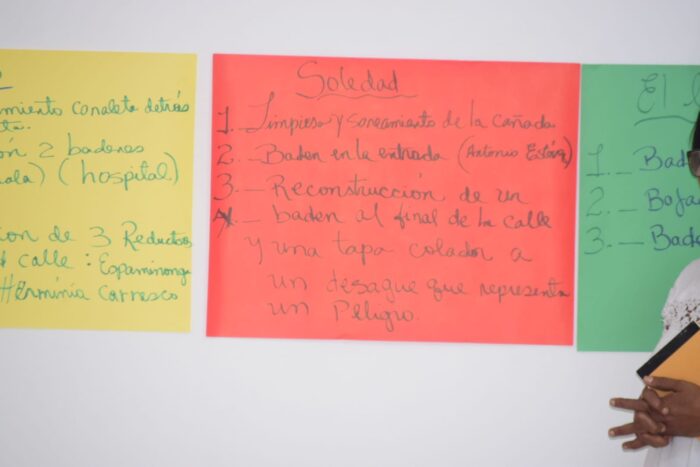 miento canaleta detrás
ta.
ón 2 badenes
ala) (hospital)
ion de 3 Reductores
calle : Espaminonga
Herminia Carrasco
Soledad
1. Limpiesa y saneamiento de la cañada
2. - Baden en la entrada (Antonio Estévez)
3. - Reconstrucción de un
- baden al final de la calle
y una tapa colador a
un desague que representa
un Peligro.
El
1. - Bad
2. - Baja
3. - Bade